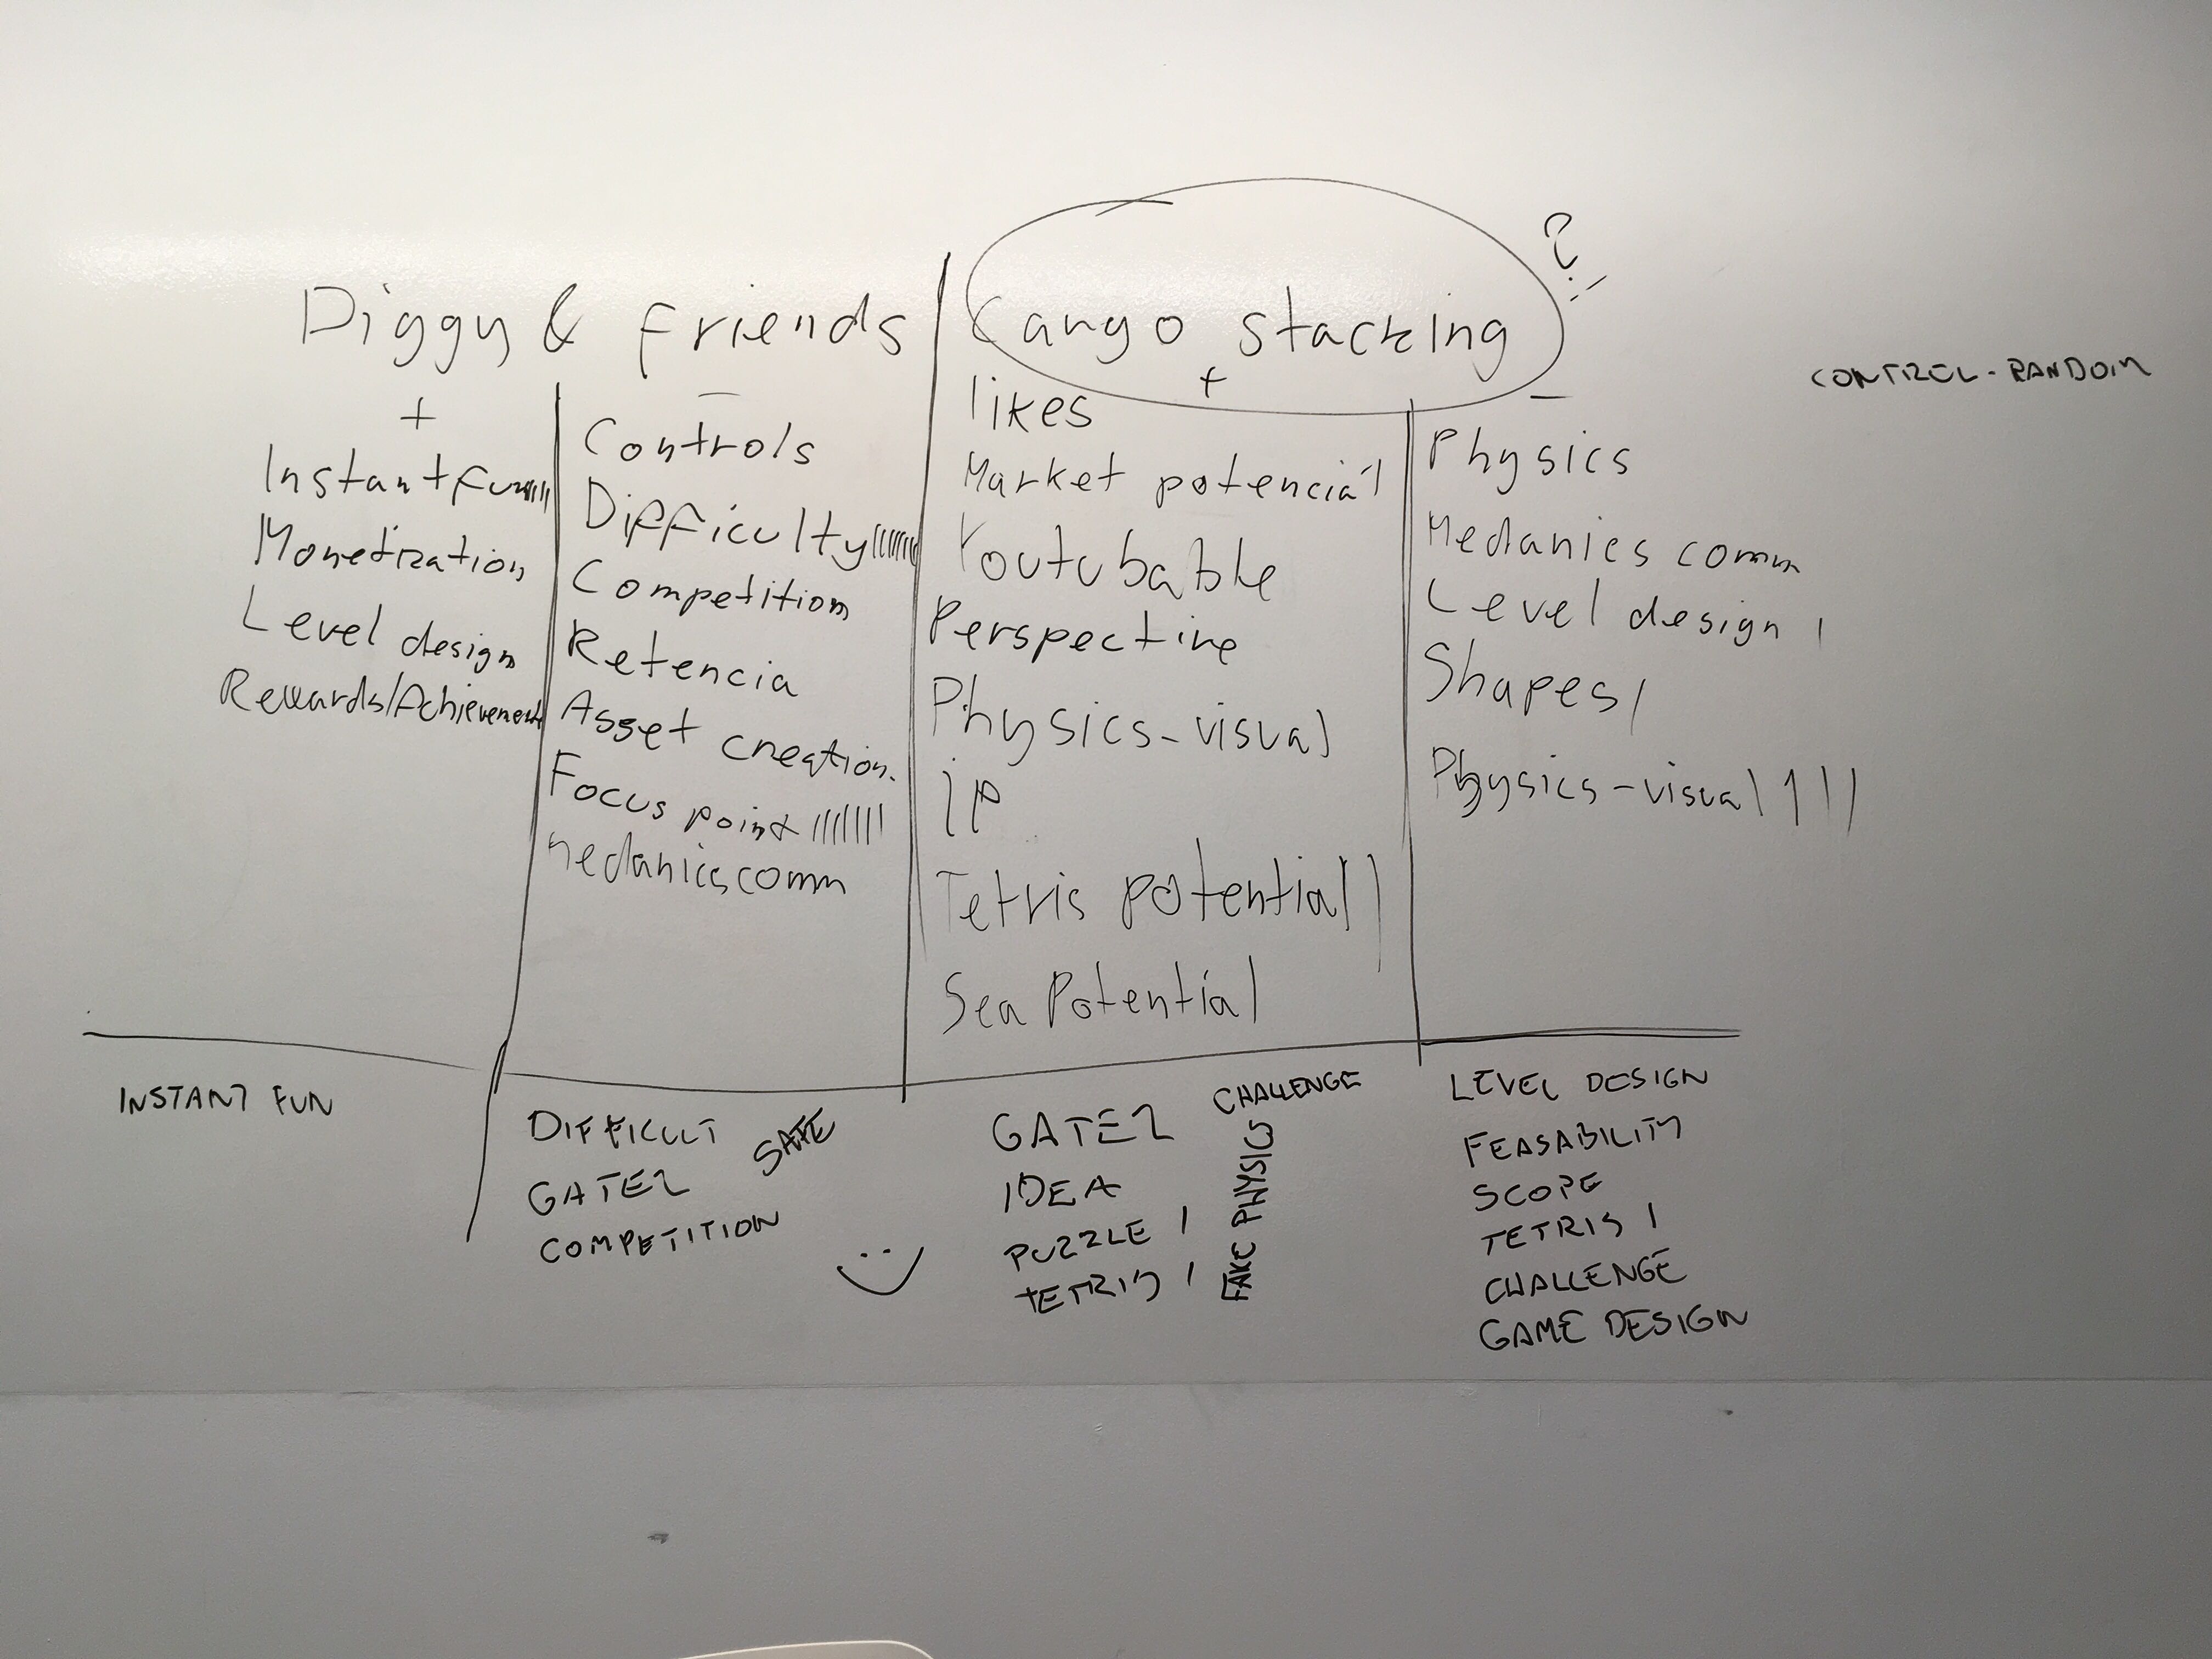 Diggy & friends
+
Instant fun |||||
Monetization
Level design
Rewards/Achievement
-
Controls
Difficulty |||||||
Competition
Retencia
Asset creation.
Focus point |||||||
mechanics comm
Cargo stacking
?!
+
likes
Market potenciál
Youtubable
Perspective
Physics-visual
IP
Tetris potential ||
Sea Potential
-
Physics
Mechanics comm
Level design |
Shapes |
Physics-visual | | |
CONTROL-RANDOM
INSTANT FUN
DIFFICULT
GATE2
COMPETITION
SAFE
GATE2
IDEA
PUZZLE |
TETRIS |
CHALLENGE
FAKE PHYSICS
LEVEL DESIGN
FEASABILITY
SCOPE
TETRIS |
CHALLENGE
GAME DESIGN